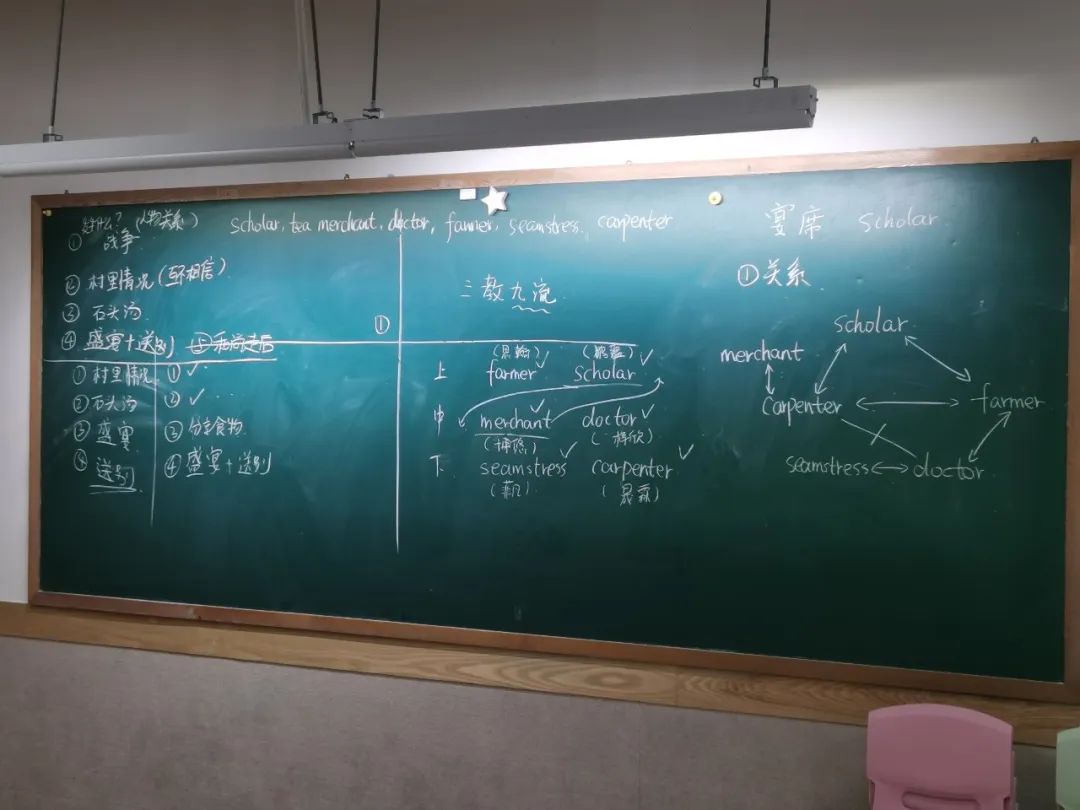 什么？(人物关系)
① 战争
② 村里情况(互不相信)
③ 石头汤
④ 盛宴+送别 ⑤和尚走后
① 村里情况 ① ✓
② 石头汤 ② ✓
③ 盛宴 ③ 分享食物
④ 送别 ④ 盛宴+送别
scholar, tea merchant, doctor, farmer, seamstress, carpenter
三教九流
①
上 farmer ✓ scholar ✓
中 merchant ✓ doctor ✓
下 seamstress ✓ carpenter ✓
宴席 scholar
①关系
scholar
merchant
carpenter farmer
seamstress doctor